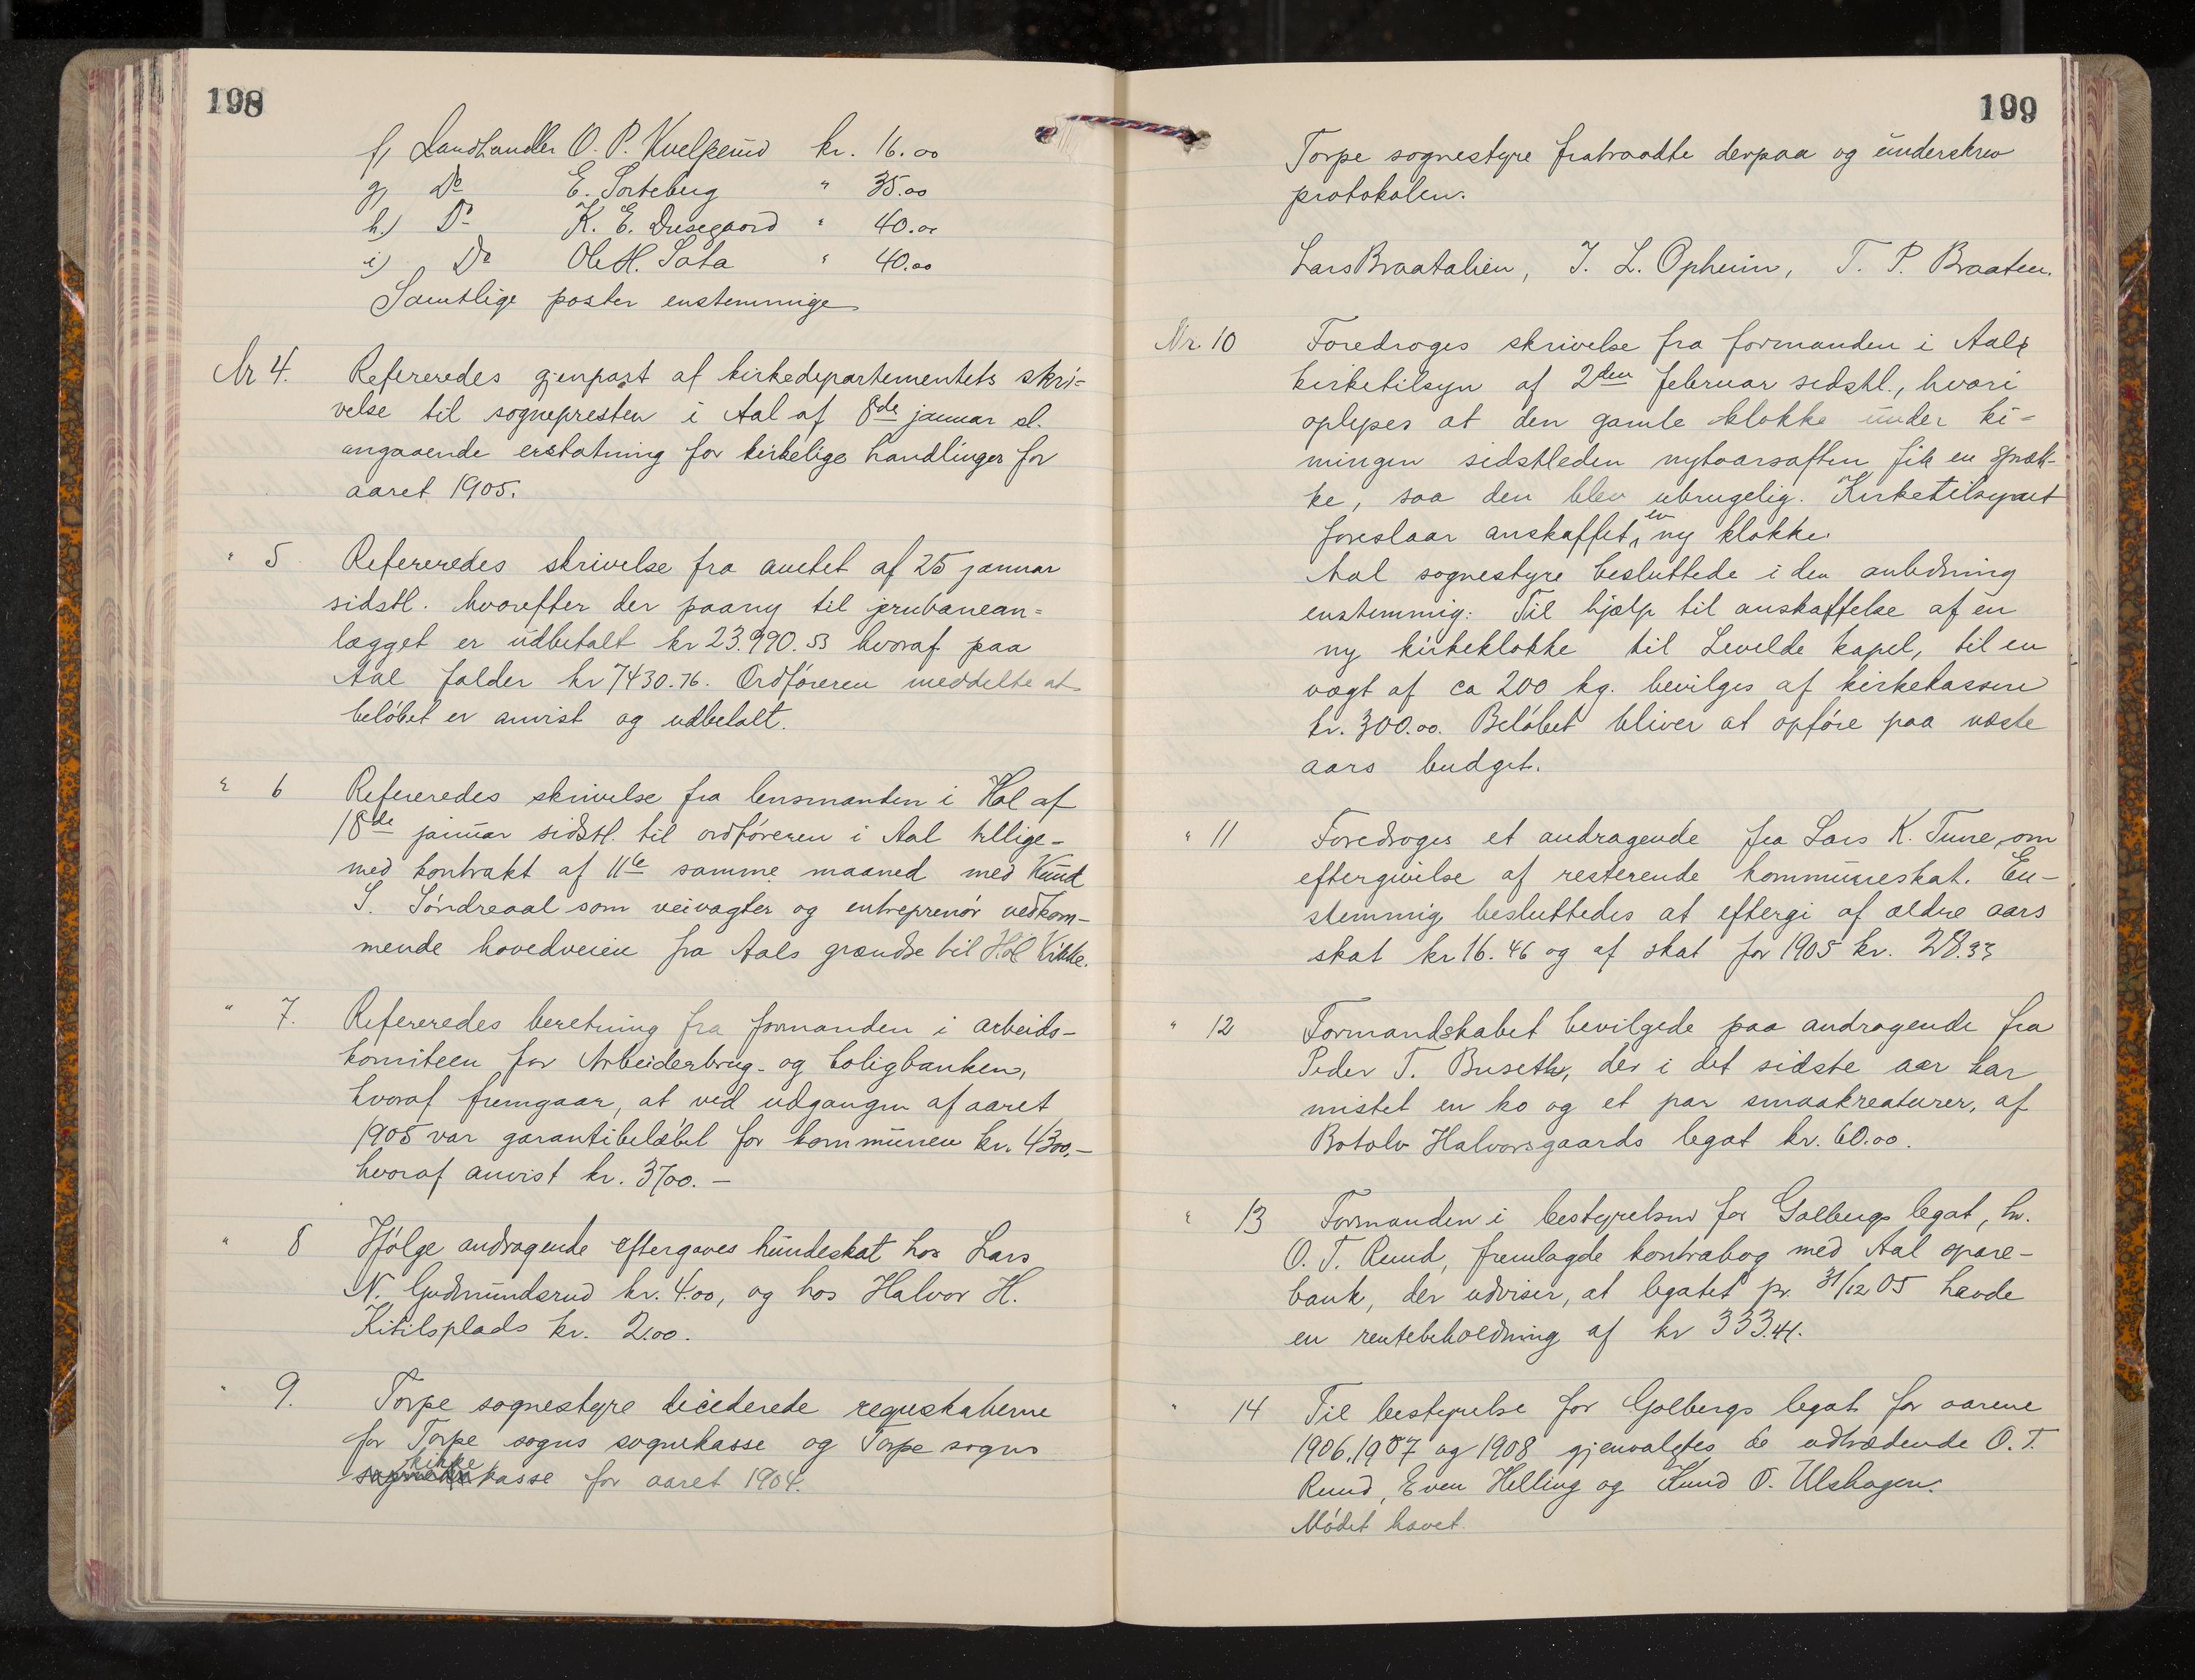 198
f, Landhandler O. P. Kvelprud kr. 16.00
g) Do E. Sorteberg " 35.00
h.) Do K. E. Dusegaard " 40.00
i) Do Ole H. Sata " 40.00
Samtlige poster enstemmige
Nr 4. Refereredes gjenpart af kirkedepartementets skri-
velse til sognepresten i Aal af 8de januar sl.
angaaende erstatning for kirkelige handlinger for
aaret 1905.
" 5 Refereredes skrivelse fra amtet af 25 januar
sidstl. hvorefter der paany til jernbanean-
lægget er udbetalt kr 23.990.53 hvoraf paa
Aal falder kr 7430.76. Ordføreren meddelte at
beløbet er anvist og udbetalt.
" 6 Refereredes skrivelse fra lensmanden i Hol af
18de januar sidstl. til ordføreren i Aal tillige-
med kontrakt af 11te samme maaned med Knut
S. Søndreaal som veivagter og entreprenør vedkom-
mende hovedveien fra Aals grændse til Hol Kirke.
" 7. Refereredes beretning fra formanden i arbeids-
komiteen for Arbeiderbrug- og boligbanken,
hvoraf fremgaar, at ved udgangen af aaret
1905 var garantibeløbet for kommunen kr. 4300,-
hvoraf anvist kr. 3700.-
" 8 Ifølge andragende eftergaves hundeskat hos Lars
N. Gudmundsrud kr. 4.00, og hos Halvor H.
Kitilsplads kr. 2.00.
" 9. Torpe sognestyre deciderede regnskaberne
for Torpe sogns sognekasse og Torpe sogns
kirke
kasse for aaret 1904.
199
Torpe sognestyre fratraadte derpaa og underskrev
protokolen.
Lars Braatalien, T. L. Opheim, T. P. Braaten.
Nr. 10 Foredroges skrivelse fra formanden i Aals
kirketilsyn af 2den februar sidstl., hvori
oplyses at den gamle klokke under ki-
mingen sidstleden nytaarsaften fik en spræk-
ke, saa den blev ubrugelig. Kirketilsynet
foreslaar anskaffet en ny klokke.
Aal sognestyre besluttede i den anledning
enstemmig: Til hjælp til anskaffelse af en
ny kirkeklokke til Levelde kapel, til en
vægt af ca 200 kg. bevilges af kirkekassen
kr. 300.00. Beløbet bliver at opføre paa næste
aars budget.
" 11 Foredroges et andragende fra Lars K. Tune om
eftergivelse af resterende kommuneskat. En-
stemmig besluttedes at eftergi af ældre aars
skat kr 16.46 og af skat for 1905 kr. 28.33
" 12 Formandskabet bevilgede paa andragende fra
Peder T. Buseth, der i det sidste aar har
mistet en ko og et par smaakreaturer, af
Botolv Halvorsgaards legat kr. 60.00.
" 13 Formanden i bestyrelsen for Golbergs legat, hr.
O. T. Ruud, fremlagde kontrabog med Aal spare-
bank, der udviser, at legatet pr. 31/12 05 havde
en rentebeholdning af kr 333.41.
" 14 Til bestyrelse for Golbergs legat for aarene
1906, 1907 og 1908 gjenvalgtes de udtrædende O. T.
Ruud, Even Helling og Knud O. Ulshagen.
Mødet hævet.